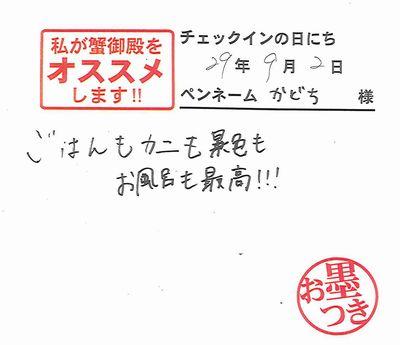 私が蟹御殿を
オススメ
します!!
チェックインの日にち
29年9月2日
ペンネーム かどち 様
ごはんもカニも景色も
お風呂も最高!!!
お墨つき